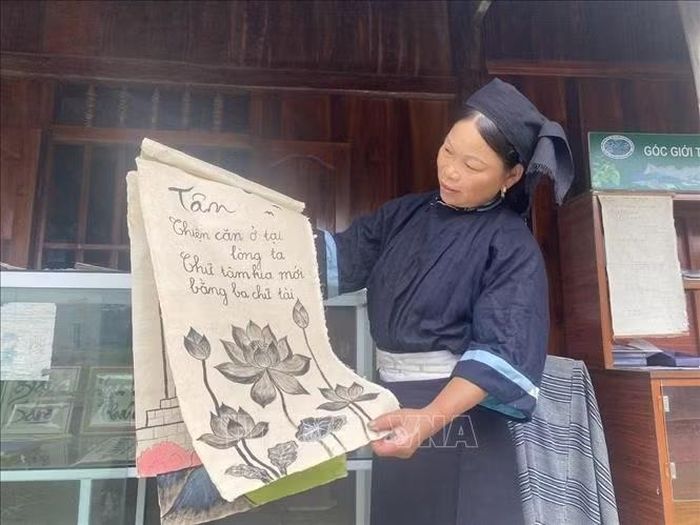 Tâm
Thiện căn ở tại
lòng ta
Chữ tâm kia mới
bằng ba chữ tài
GÓC GIỚI T